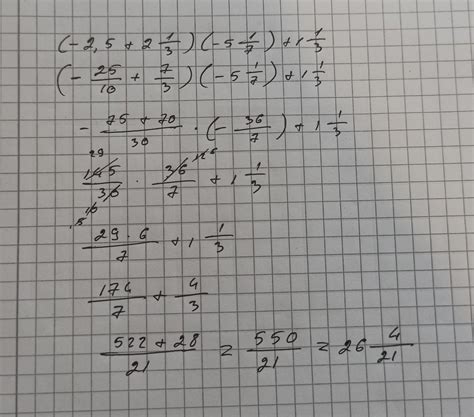 (-2,5 + 2 1/3)(-5 1/7) + 1 1/3
(- 25/10 + 7/3)(-5 1/7) + 1 1/3
- (75 + 70)/30 · (- 36/7) + 1 1/3
29
145/30 · 36/7 + 1 1/3
(29 · 6)/7 + 1 1/3
174/7 + 4/3
(522 + 28)/21 = 550/21 = 26 4/21